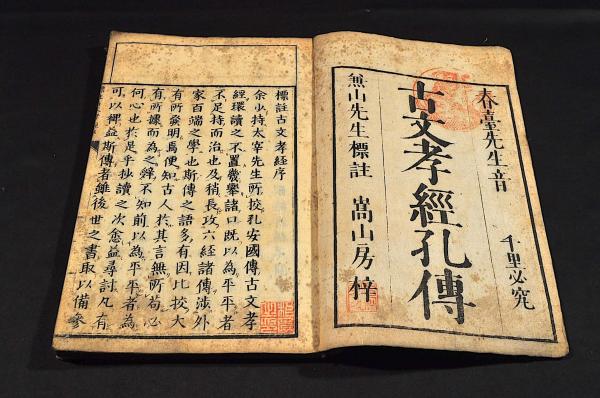 春臺先生音
千里必究
古文孝經孔傳
無山先生標註
嵩山房梓
標註古文孝經序
余少持太宰先生所挍孔安國傳古文孝
經環讀之不置幾舉諸口既以為平平者
不足持而治也及稍長攻六經諸傳涉外
家百端之學也斯傳之語多有因比挍大
有所發明焉便知古人於其言無所苟必
有所據而為之繹不知前以為平平者為
何心也於是乎抄讀之次愈益尋討凡有
可以裨益斯傳者雖後世之書取以備參